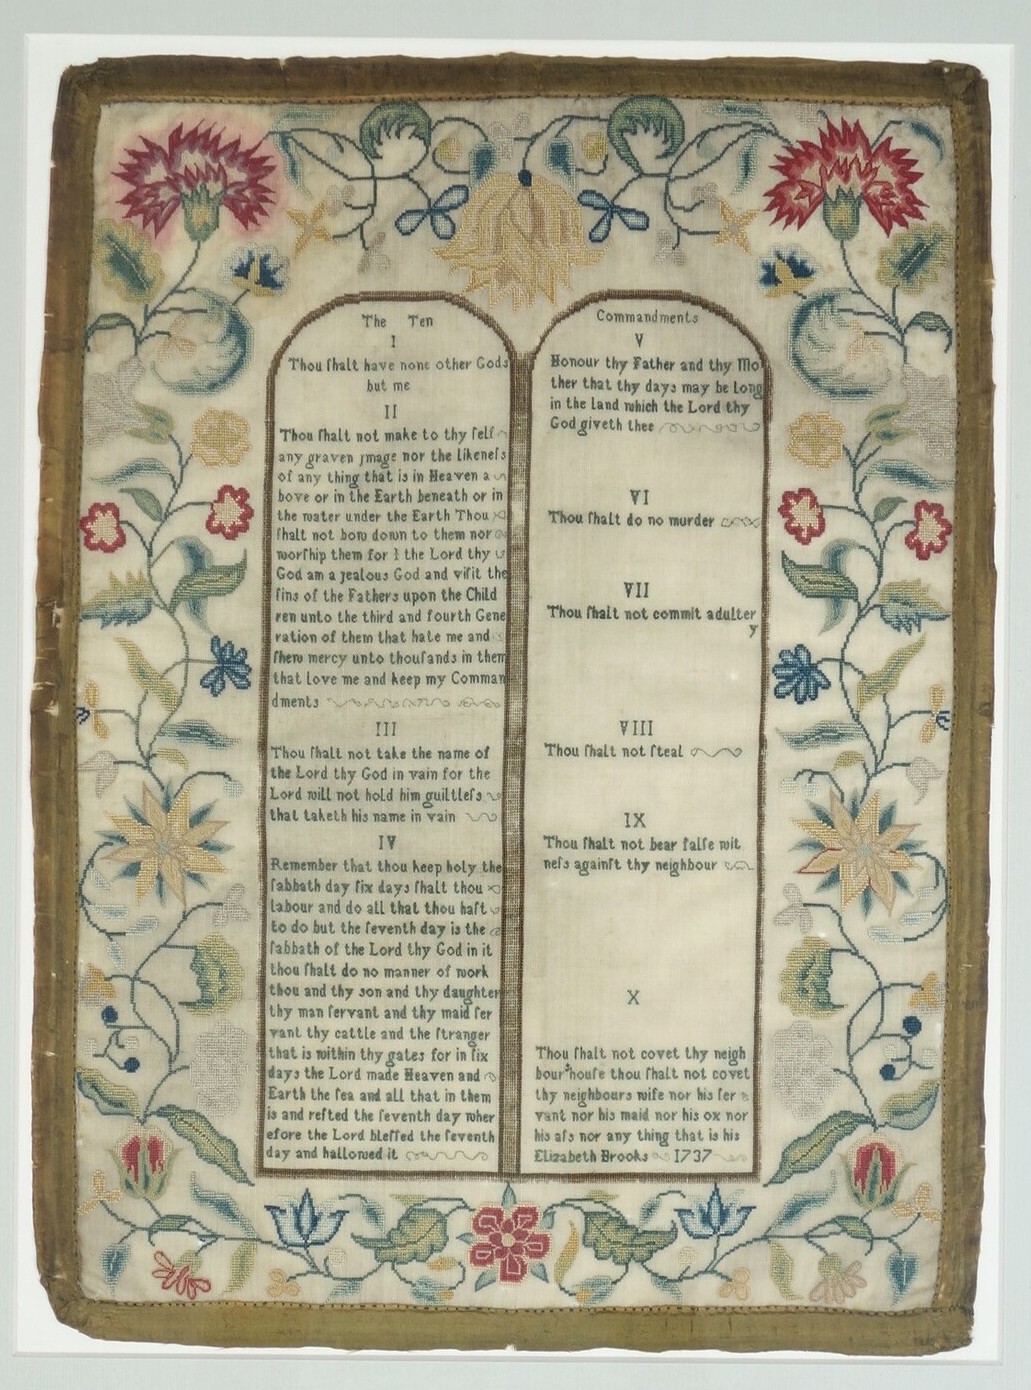 The Ten
I
Thou ſhalt have none other Gods
but me
II
Thou ſhalt not make to thy ſelf
any graven jmage nor the likeneſs
of any thing that is in Heaven a
bove or in the Earth beneath or in
the water under the Earth Thou
ſhalt not bow down to them nor
worſhip them for I the Lord thy
God am a jealous God and viſit the
ſins of the Fathers upon the Child
ren unto the third and fourth Gene
ration of them that hate me and
ſhew mercy unto thouſands in them
that love me and keep my Comman
dments
III
Thou ſhalt not take the name of
the Lord thy God in vain for the
Lord will not hold him guiltleſs
that taketh his name in vain
IV
Remember that thou keep holy the
ſabbath day ſix days ſhalt thou
labour and do all that thou haſt
to do but the ſeventh day is the
ſabbath of the Lord thy God in it
thou ſhalt do no manner of work
thou and thy son and thy daughter
thy man ſervant and thy maid ſer
vant thy cattle and the ſtranger
that is within thy gates for in ſix
days the Lord made Heaven and
Earth the ſea and all that in them
is and reſted the ſeventh day wher
efore the Lord bleſſed the ſeventh
day and hallowed it
Commandments
V
Honour thy Father and thy Mo
ther that thy days may be long
in the land which the Lord thy
God giveth thee
VI
Thou ſhalt do no murder
VII
Thou ſhalt not commit adulter
y
VIII
Thou ſhalt not ſteal
IX
Thou ſhalt not bear falſe wit
neſs againſt thy neighbour
X
Thou ſhalt not covet thy neigh
bour*houſe thou ſhalt not covet
thy neighbours wife nor his ſer
vant nor his maid nor his ox nor
his aſs nor any thing that is his
Elizabeth Brooks 1737